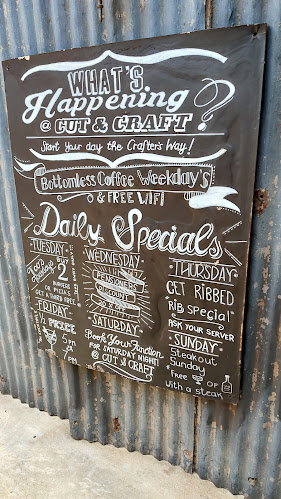 WHAT'S
Happening
@ CUT & CRAFT ?
Start Your day the Crafter's Way!
Bottomless Coffee Weekday's
& FREE WIFI
Daily Specials
TUESDAY
BUY
2
OR PIZZA'S
GET A THIRD FREE
WEDNESDAY
PENSIONERS
DISCOUNT
THURSDAY
GET RIBBED
Rib Special
ASK YOUR SERVER
FRIDAY
1/2 PRICE
5pm
7pm
SATURDAY
Book Your Function
FOR SATURDAY NIGHT
@ CUT & CRAFT
SUNDAY
Steakout
Sunday
Free OF
with a steak